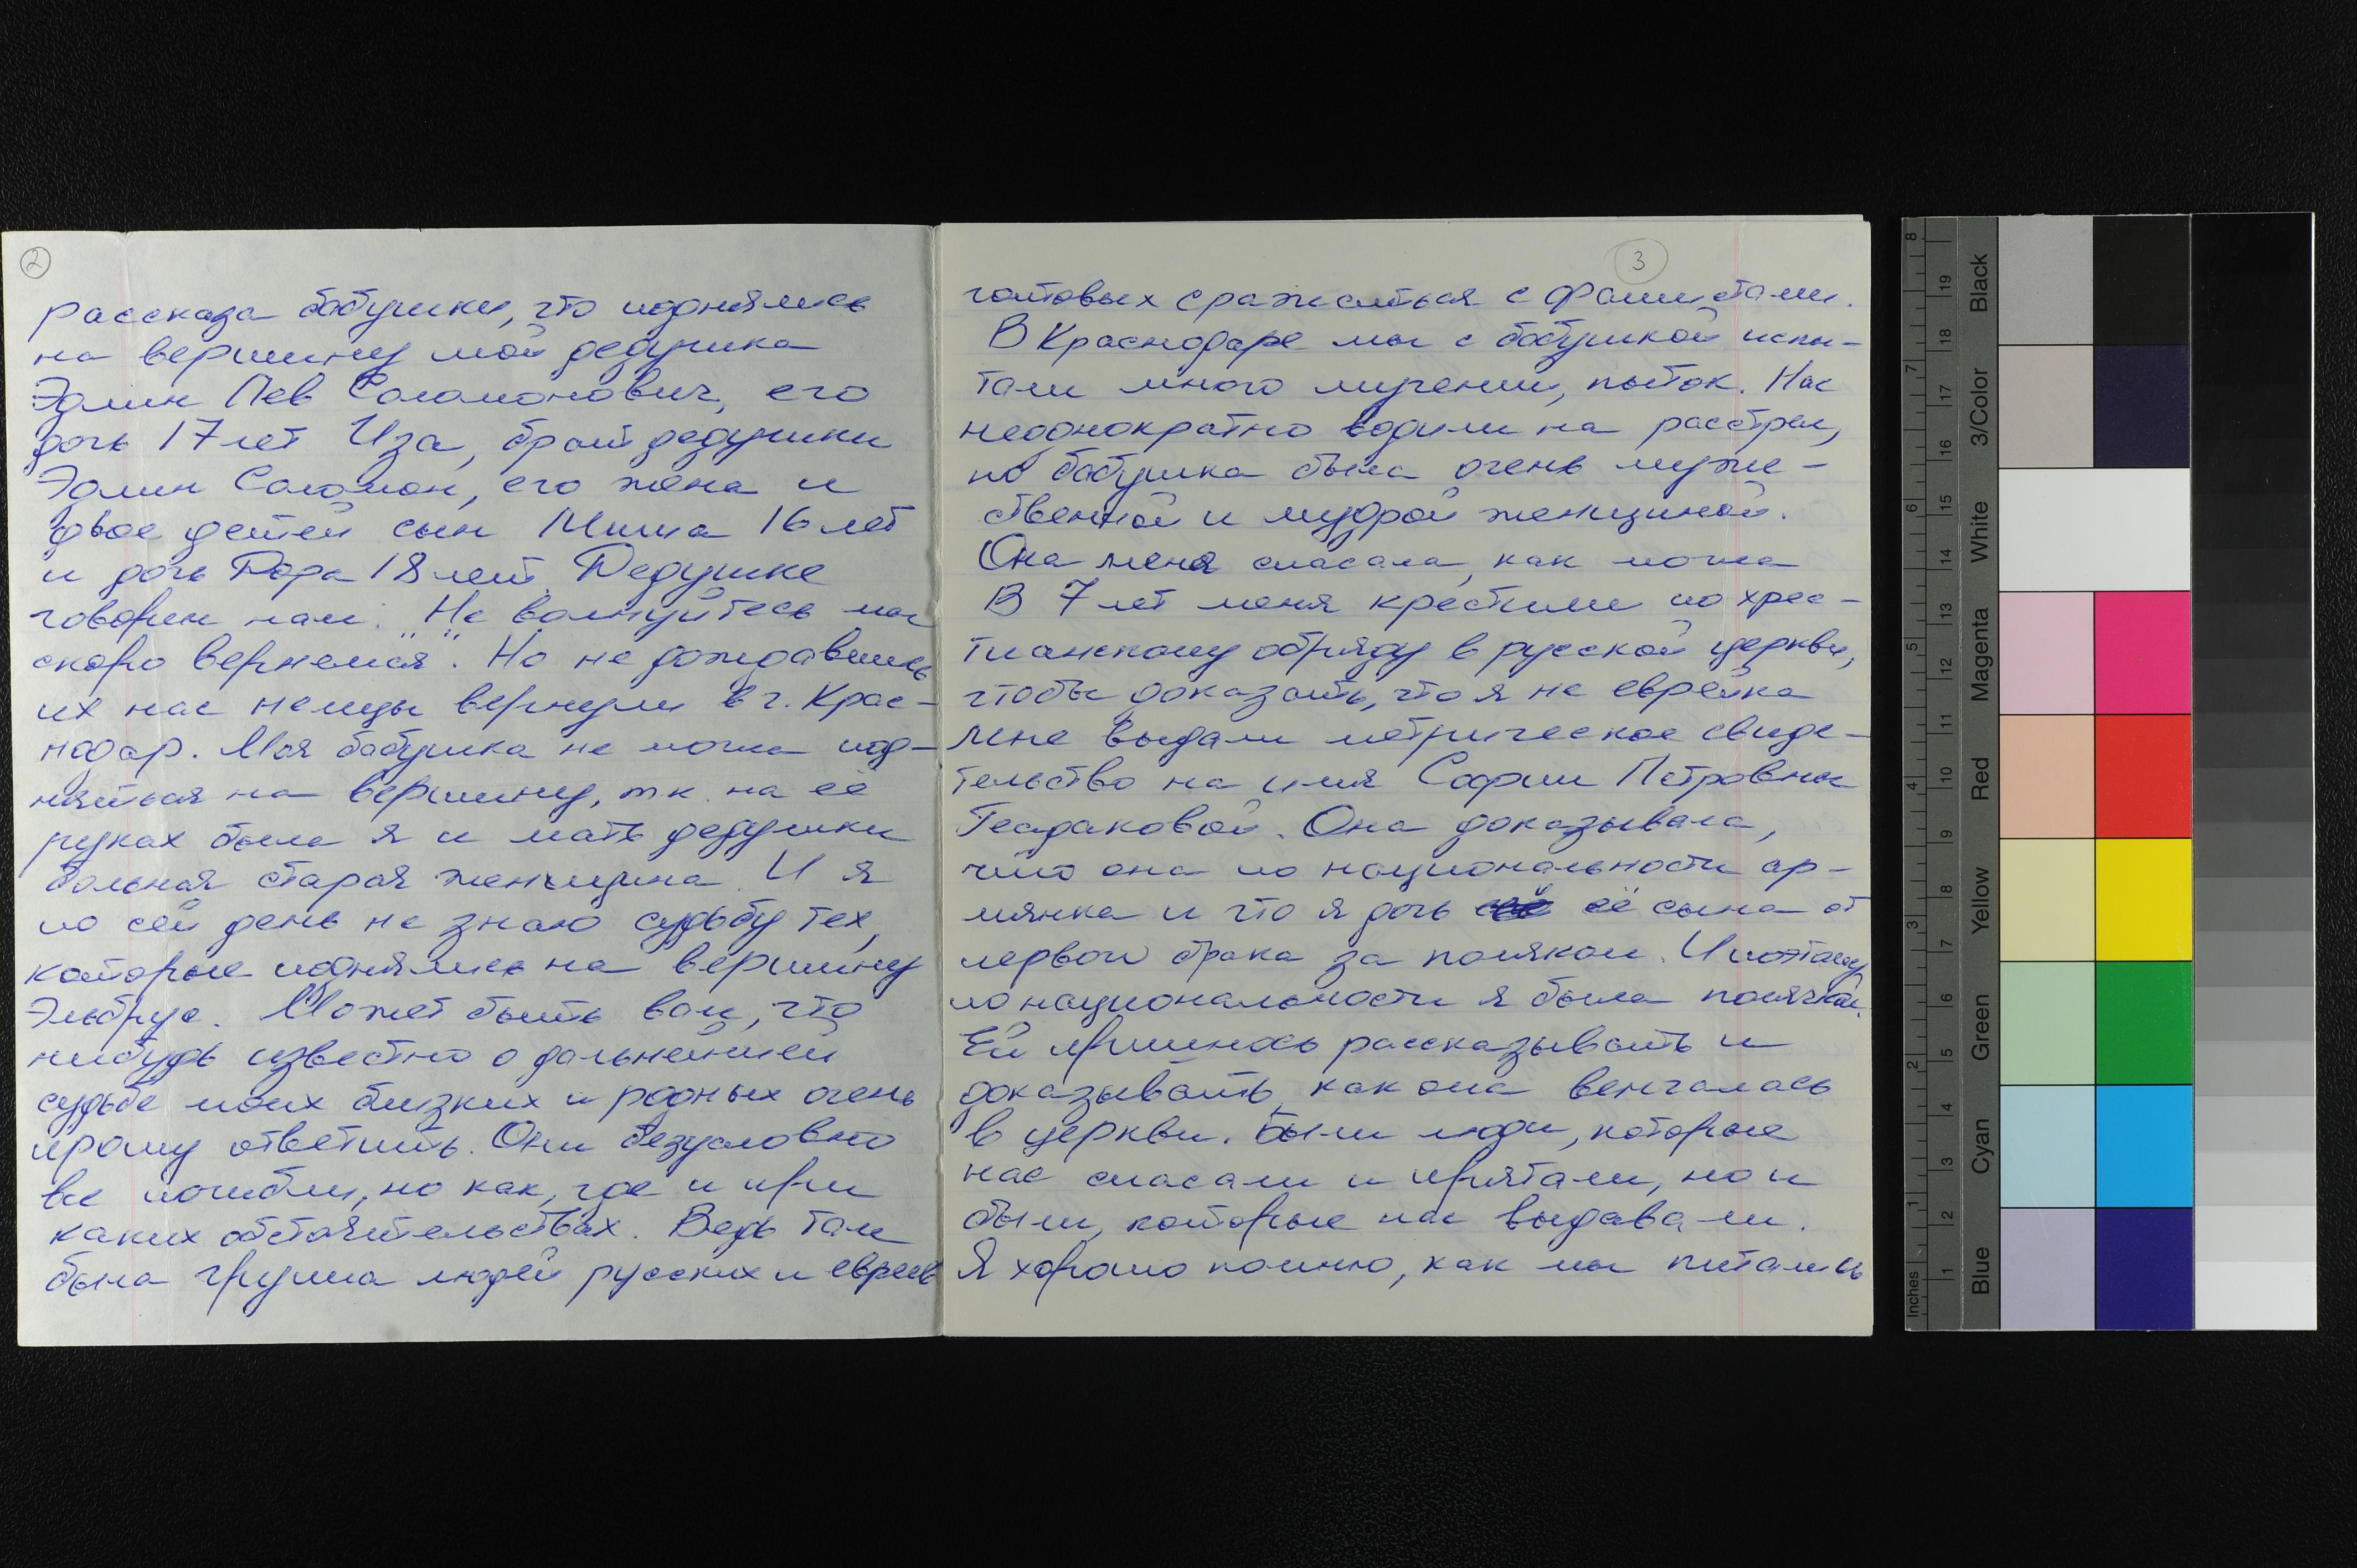 2
рассказа бабушки, что поднялись
на вершину мой дедушка
Эдлин Лев Соломонович, его
дочь 17 лет Иза, брат дедушки
Эдлин Соломон, его жена и
двое детей сын Миша 16 лет
и дочь Дора 18 лет. Дедушке
говорил нам: "Не волнуйтесь мы
скоро вернемся". Но не дождавшись
их нас немцы вернули в г. Крас-
нодар. Моя бабушка не могла под-
няться на вершину, т.к. на её
руках была я и мать дедушки
больная старая женщина. И я
по сей день не знаю судьбу тех,
которые поднялись на вершину
Эльбрус. Может быть вам, что
нибудь известно о дальнейшей
судьбе моих близких и родных очень
прошу ответить. Они безусловно
все погибли, но как, где и при
каких обстоятельствах. Ведь там
была группа людей русских и евреев
3
готовых сражаться с фашистами.
В Краснодаре мы с бабушкой испы-
тали много мучении, пыток. Нас
неоднократно водили на расстрел,
но бабушка была очень муже-
ственной и мудрой женщиной.
Она меня спасала, как могла
В 7 лет меня крестили по хрес-
тианскому обряду в русской церкви,
чтобы доказать, что я не еврейка
мне выдали метрическое свиде-
тельство на имя Софии Петровны
Она доказывала,
что она по национальности ар-
мянка и что я дочь её сына от
первого брака за поляком. И поэтому
по национальности я была полячкой.
Ей пришлось рассказывать и
доказывать, как она венчалась
в церкви. Были люди, которые
нас спасали и прятали, но и
были, которые нас выдавали.
Я хорошо помню, как мы питались
8
7
6
5
4
3
2
1
Inches
19
18
17
16
15
14
13
12
11
10
9
8
7
6
5
4
3
2
1
Black
3/Color
White
Magenta
Red
Yellow
Green
Cyan
Blue